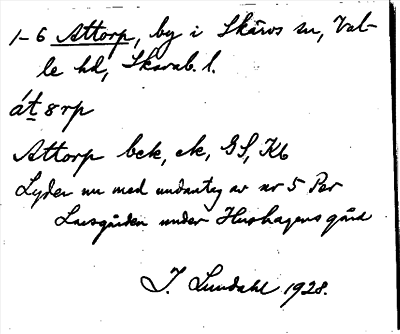 1-6 Attorp, by i Skärvs sn, Val-
le hd, Skarab. l.
át8rp
Attorp bek, ek, GS, Kb
Lyder nu med undantag av nr 5 Per
Larsgården under Hushagens gård
I. Lundahl 1928.